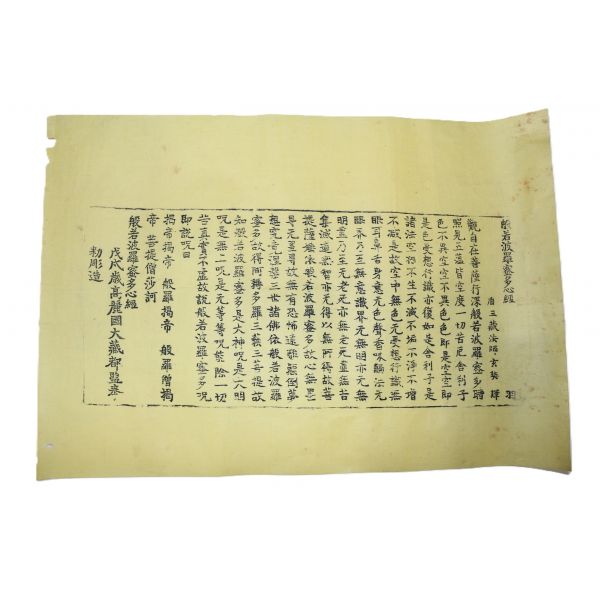 般若波羅蜜多心經 羽
唐三藏法師玄奘 譯
觀自在菩薩行深般若波羅蜜多時
照見五蘊皆空度一切苦厄舍利子
色不異空空不異色色即是空空即
是色受想行識亦復如是舍利子是
諸法空相不生不滅不垢不淨不增
不減是故空中無色无受想行識無
眼耳鼻舌身意无色聲香味觸法无
眼界乃至無意識界無無明亦无無
明盡乃至无老死亦無老死盡無苦
集滅道無智亦无得以無所得故菩
提薩埵依般若波羅蜜多故心無罣
㝵无罣㝵故無有恐怖遠離顛倒夢
想究竟涅槃三世諸佛依般若波羅
蜜多故得阿耨多羅三藐三菩提故
知般若波羅蜜多是大神呪是大明
呪是無上呪是无等等呪能除一切
苦真實不虛故說般若波羅蜜多呪
即說呪曰
揭帝揭帝 般羅揭帝 般羅僧揭
帝 菩提僧莎訶
般若波羅蜜多心經
戊戌歲高麗國大藏都監奉
勑彫造